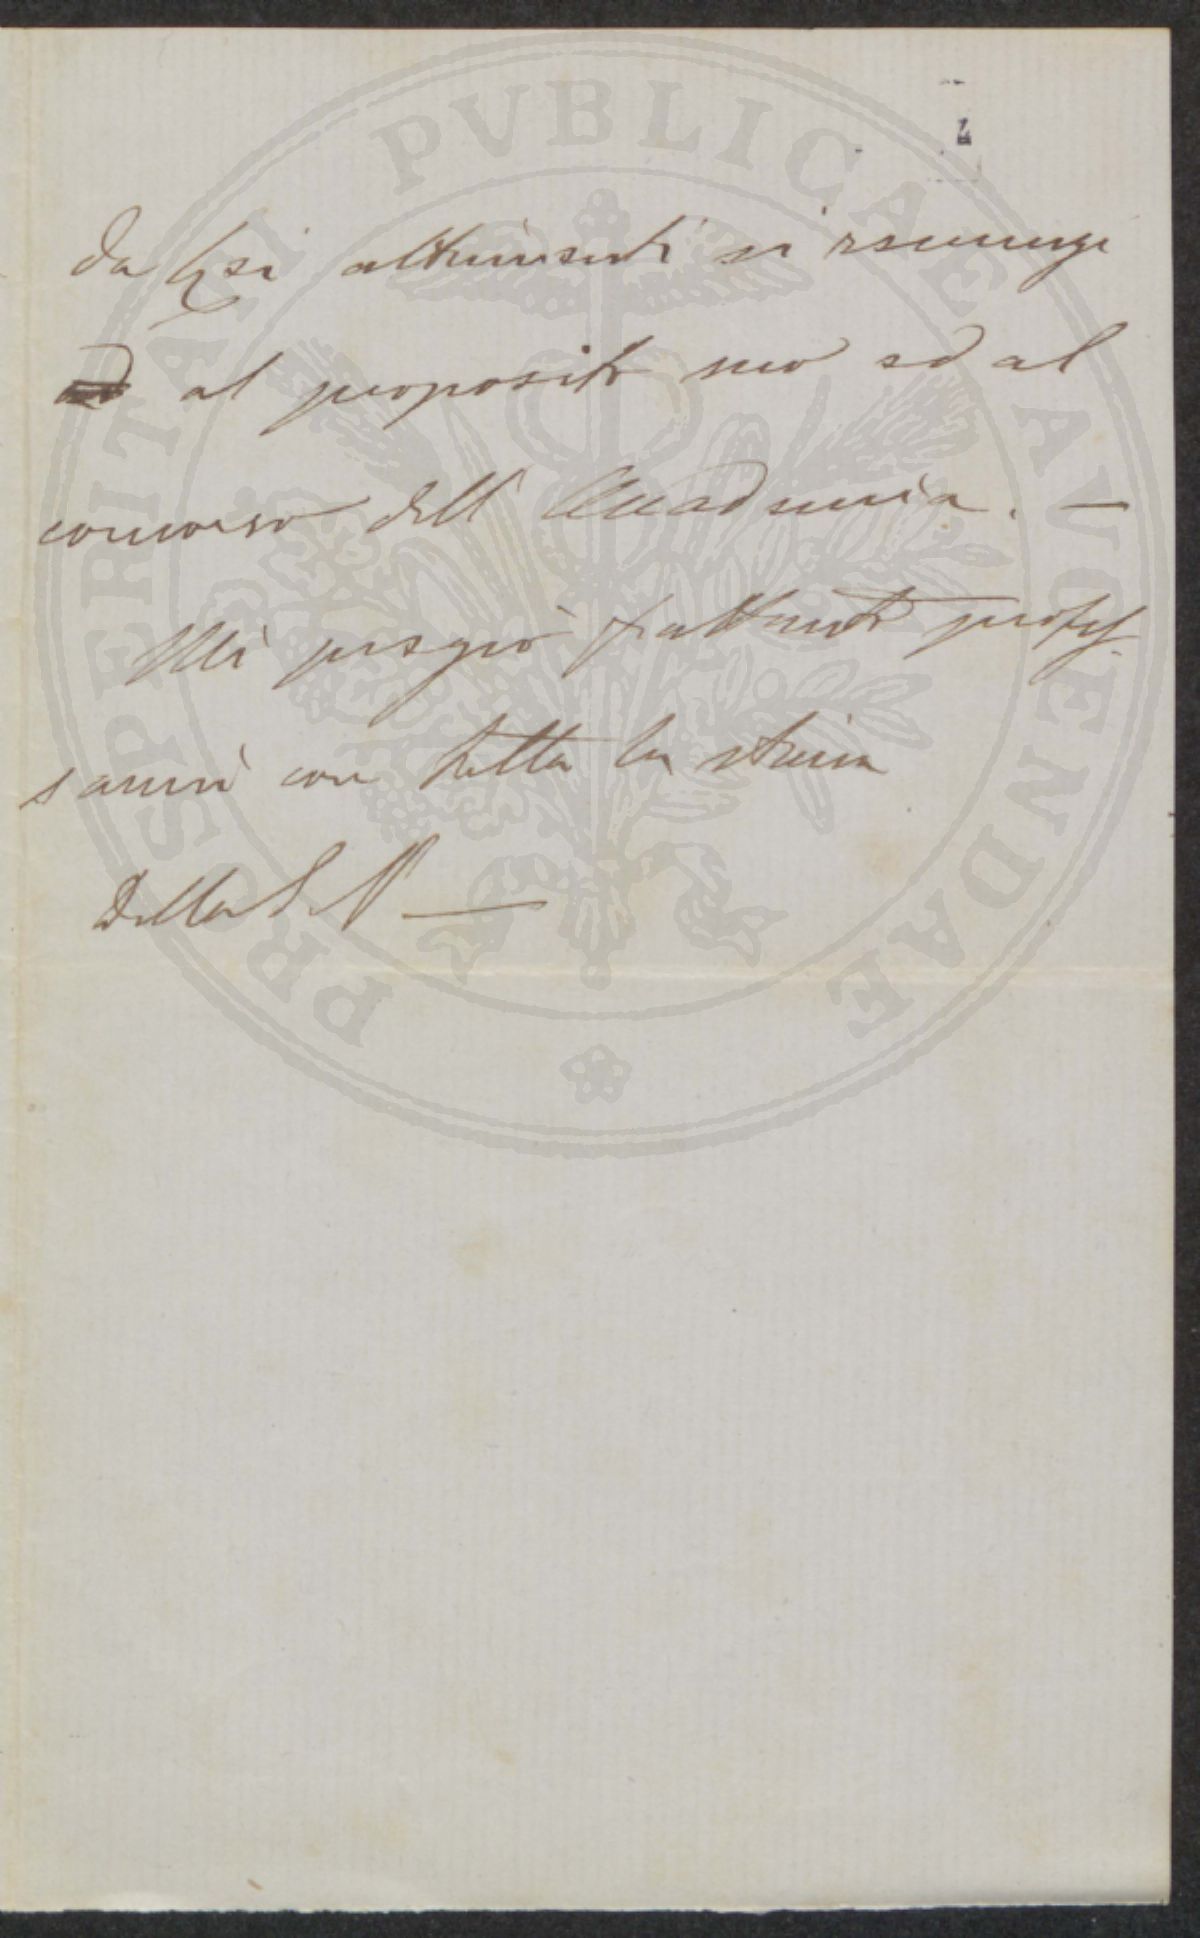 PROSPERITATI PVBLICAE AVGENDAE
da Lei altrimenti si
al proposito suo ed al
concorso dell' Accademia. —
Mi pregio frattanto profes
sarmi con tutta la stima
Della S. V. —